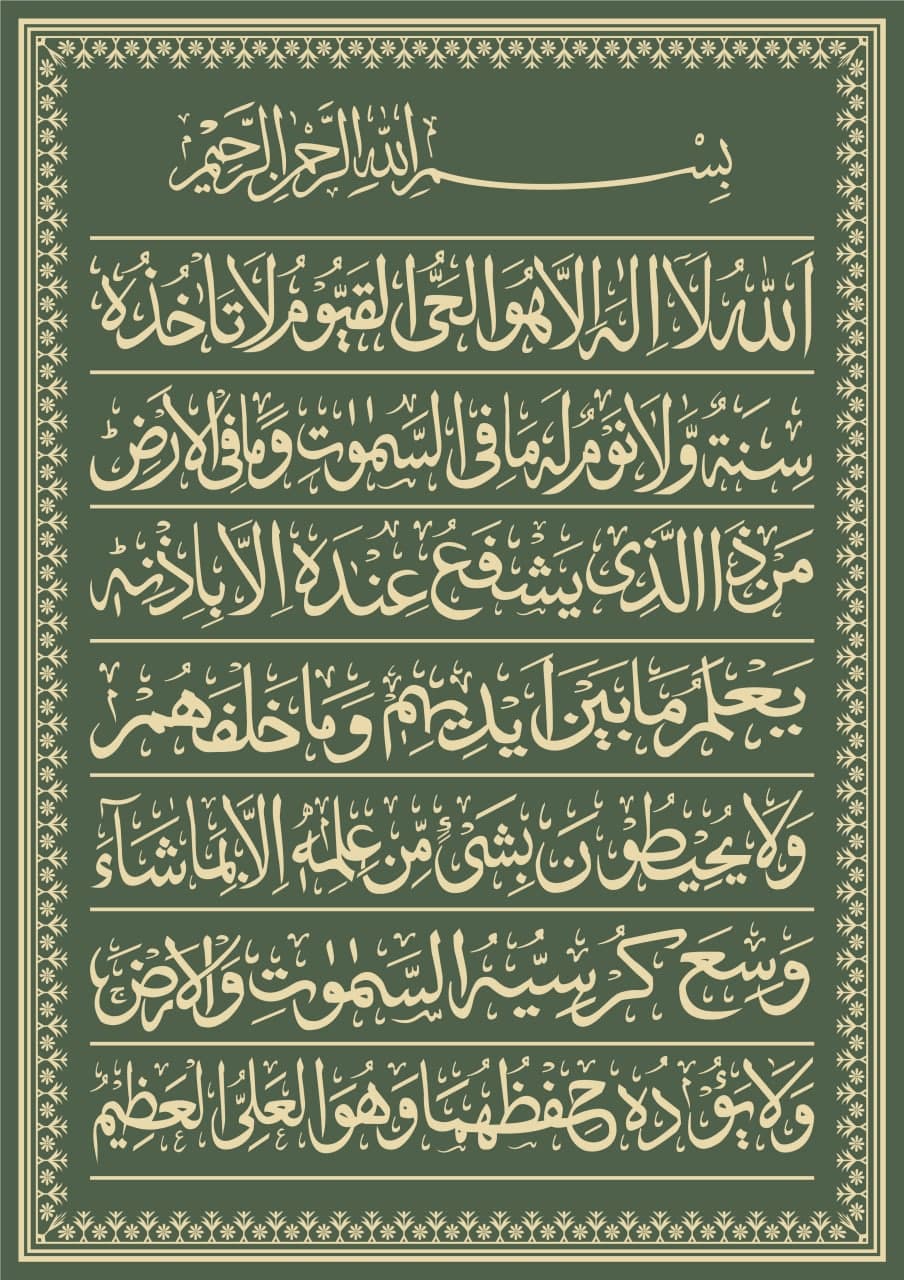 بِسْمِ اللهِ الرَّحْمٰنِ الرَّحِيْمِ
اَللّٰهُ لَآ اِلٰهَ اِلَّا هُوَ الْحَیُّ الْقَیُّوْمُ لَا تَاْخُذُهٗ
سِنَةٌ وَّلَا نَوْمٌ لَهٗ مَا فِی السَّمٰوٰتِ وَمَا فِی الْاَرْضِؕ
مَنْ ذَا الَّذِیْ یَشْفَعُ عِنْدَهٗ اِلَّا بِاِذْنِهٖؕ
یَعْلَمُ مَا بَیْنَ اَیْدِیْهِمْ وَمَا خَلْفَهُمْ
وَلَا یُحِیْطُوْنَ بِشَیْءٍ مِّنْ عِلْمِهٖ اِلَّا بِمَا شَآءَ
وَسِعَ كُرْسِیُّهُ السَّمٰوٰتِ وَالْاَرْضَ
وَلَا یَـُٔوْدُهٗ حِفْظُهُمَا وَهُوَ الْعَلِیُّ الْعَظِیْمُ